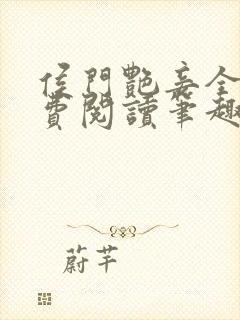 侯門艷妾全
費閱讀筆趣
蔚芊